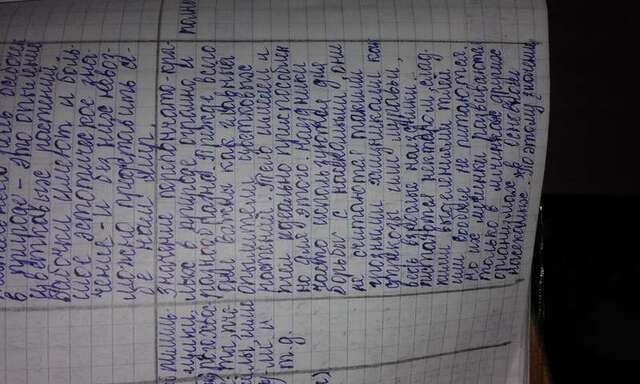 в природе - это опыление
цветковых растений
бабочки имеют и боль-
шое эстетическое зна-
чение - и без них невоз-
можно представить се-
бе наш мир.
пилиль-
щики,
рогохвос-
ты, пче-
лы, шме-
ли и
т.д.
Значение перепончато-кры-
лых в природе огромно и
разнообразно. Прежде всего
они важны как главные
опылители цветковых
растений. Тело шмелей и
пчел идеально приспособлен
но для этого. Наездники
часто используются для
борьбы с насекомыми, они
не считаются такими
грозными хищниками как
стрекозы или муравьи,
ведь взрослые наездники
питаются нектаром, слад-
кими выделениями тлей
или вообще не питаются.
Но их личинки развиваются
только в личинках других
организмах, в основном
насекомых. Поэтому значение
полны